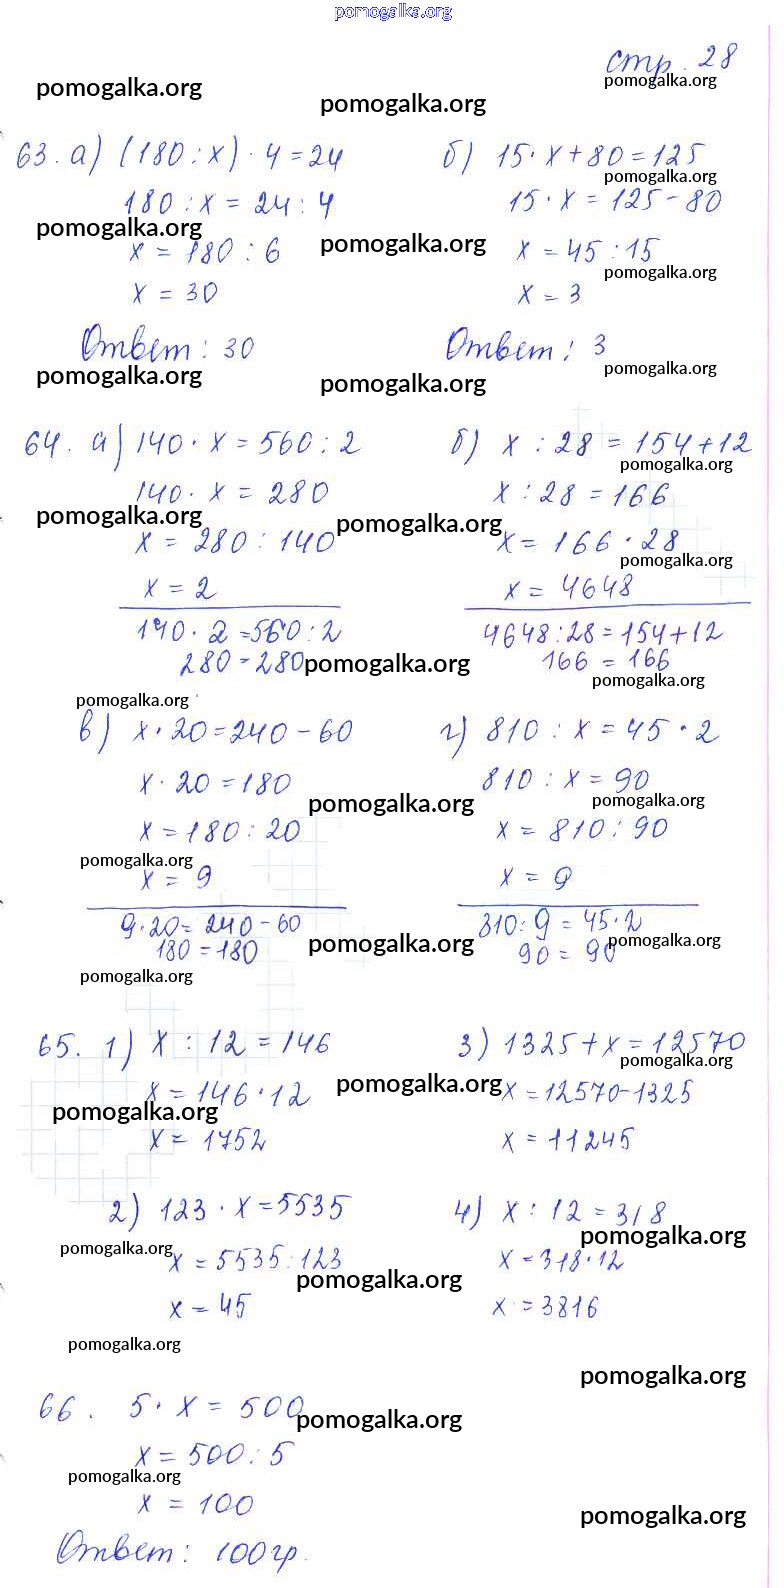 pomogalka.org
стр. 28
pomogalka.org
pomogalka.org
pomogalka.org
63. а) (180 : x) · 4 = 24
180 : x = 24 : 4
x = 180 : 6
x = 30
Ответ : 30
б) 15 · x + 80 = 125
15 · x = 125 - 80
x = 45 : 15
x = 3
Ответ : 3
pomogalka.org
pomogalka.org
pomogalka.org
pomogalka.org
pomogalka.org
pomogalka.org
pomogalka.org
64. а) 140 · x = 560 : 2
140 · x = 280
x = 280 : 140
x = 2
140 · 2 = 560 : 2
280 = 280
б) x : 28 = 154 + 12
x : 28 = 166
x = 166 · 28
x = 4648
4648 : 28 = 154 + 12
166 = 166
pomogalka.org
pomogalka.org
pomogalka.org
pomogalka.org
pomogalka.org
pomogalka.org
pomogalka.org
в) x · 20 = 240 - 60
x · 20 = 180
x = 180 : 20
x = 9
9 · 20 = 240 - 60
180 = 180
г) 810 : x = 45 · 2
810 : x = 90
x = 810 : 90
x = 9
810 : 9 = 45 · 2
90 = 90
pomogalka.org
pomogalka.org
pomogalka.org
pomogalka.org
pomogalka.org
pomogalka.org
65. 1) x : 12 = 146
x = 146 · 12
x = 1752
3) 1325 + x = 12570
x = 12570 - 1325
x = 11245
pomogalka.org
pomogalka.org
pomogalka.org
2) 123 · x = 5535
x = 5535 : 123
x = 45
4) x : 12 = 318
x = 318 · 12
x = 3816
pomogalka.org
pomogalka.org
pomogalka.org
pomogalka.org
pomogalka.org
66. 5 · x = 500
x = 500 : 5
x = 100
Ответ : 100 гр.
pomogalka.org
pomogalka.org
pomogalka.org